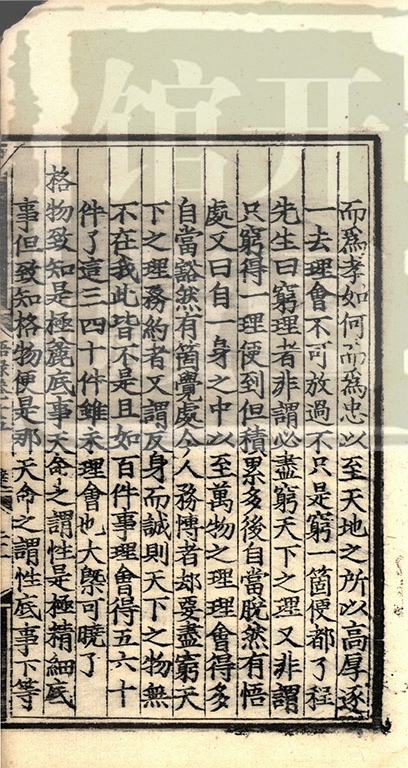 而爲孝如何而爲忠以至天地之所以高厚逐
一去理會不可放過不只是窮一箇便都了程
先生曰窮理者非謂必盡窮天下之理又非謂
只窮得一理便到但積累多後自當脫然有悟
處又曰自一身之中以至萬物之理理會得多
自當豁然有箇覺處今人務博者却要盡窮天
下之理務約者又謂反身而誠則天下之物無
不在我此皆不是且如百件事理會得五六十
件了這三四十件雖未理會也大槩可曉了
格物致知是極麄底事天命之謂性是極精細底
事但致知格物便是那天命之謂性底事下等